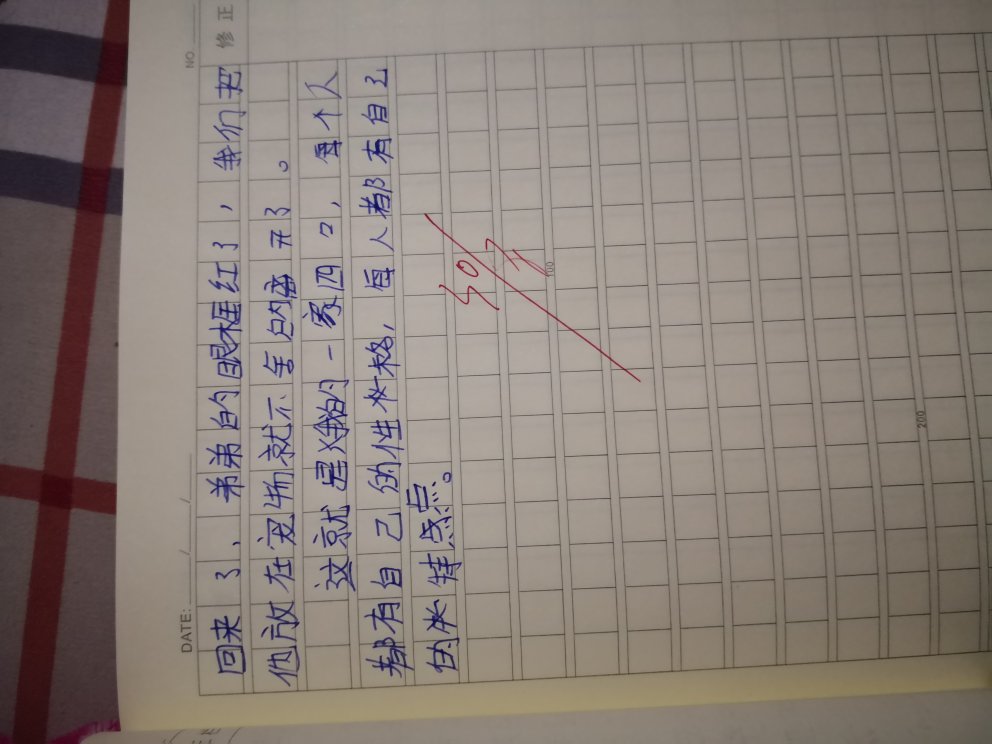 NO.
DATE: / /
修正
回来了，弟弟的眼框红了，我们把
他放在宠物就不舍的离开了。
这就是我的一家四口，每个人
都有自己的性格，每人都有自己
的特点。
50
100
200